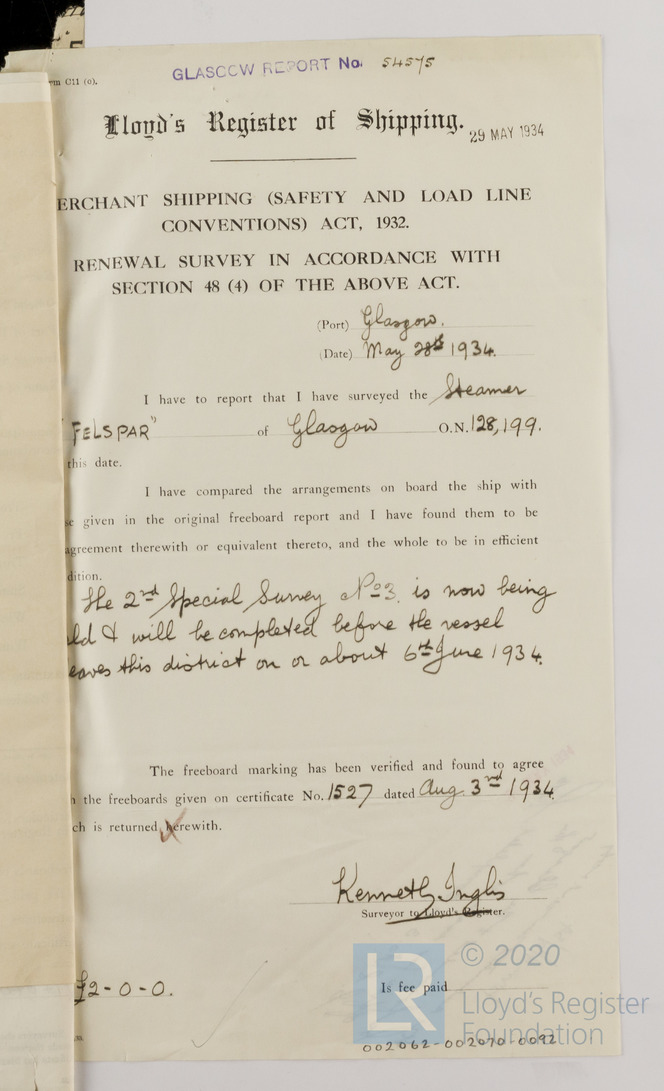 GLASGOW REPORT No. 54575
rm C11 (o).
Lloyd's Register of Shipping.
29 MAY 1934
ERCHANT SHIPPING (SAFETY AND LOAD LINE
CONVENTIONS) ACT, 1932.
RENEWAL SURVEY IN ACCORDANCE WITH
SECTION 48 (4) OF THE ABOVE ACT.
(Port) Glasgow.
(Date) May 28th 1934.
I have to report that I have surveyed the Steamer
"FELSPAR" of Glasgow O.N. 128,199.
this date.
I have compared the arrangements on board the ship with
se given in the original freeboard report and I have found them to be
agreement therewith or equivalent thereto, and the whole to be in efficient
dition.
The 2nd Special Survey No 3. is now being
ld & will be completed before the vessel
eaves this district on or about 6th June 1934.
The freeboard marking has been verified and found to agree
h the freeboards given on certificate No. 1527 dated Aug. 3rd 1934
ch is returned herewith.
Kenneth Inglis
Surveyor to Lloyd's Register.
£2-0-0.
Is fee paid
© 2020
LR
Lloyd's Register
Foundation
002062-002070-0092